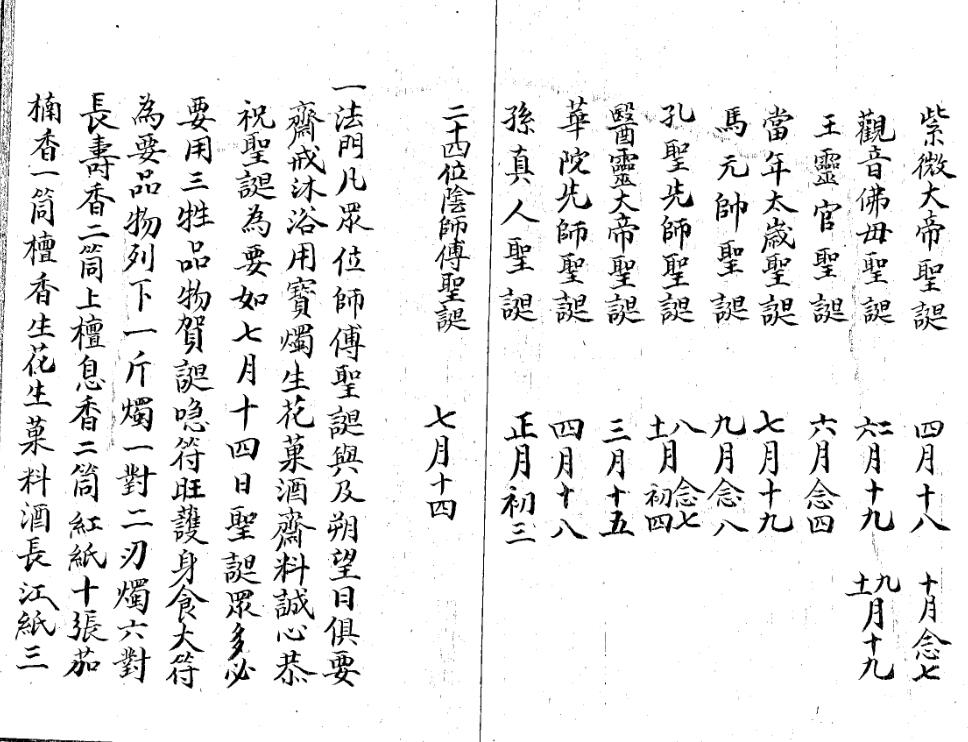 紫微大帝聖誕 四月十八 十月念七
觀音佛母聖誕 二六月十九 九十一月十九
王靈官聖誕 六月念四
當年太歲聖誕 七月十九
馬元帥聖誕 九月念八
孔聖先師聖誕 八月念七 十一月初四
醫靈大帝聖誕 三月十五
華院先師聖誕 四月十八
孫真人聖誕 正月初三
二十四位陰師傅聖誕 七月十四
一法門凡眾位師傅聖誕與及朔望日俱要
齋戒沐浴用寶燭生花菓酒齋料誠心恭
祝聖誕為要如七月十四日聖誕眾多必
要用三牲品物賀誕喼符旺護身食大符
為要品物列下一斤燭一對二刃燭六對
長壽香二筒上檀息香二筒紅紙十張茄
楠香一筒檀香生花生菓料酒長江紙三